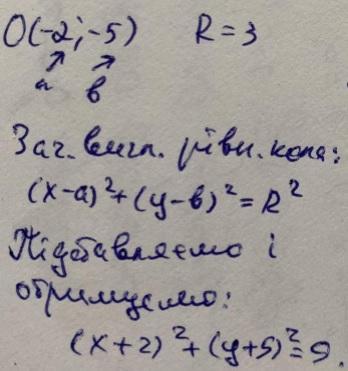 O(-2; -5) R = 3
a b
Заг. вигл. рівн. кола:
(x-a)²+(y-b)²=R²
Підставляємо і
отримуємо:
(x+2)²+(y+5)²=9.